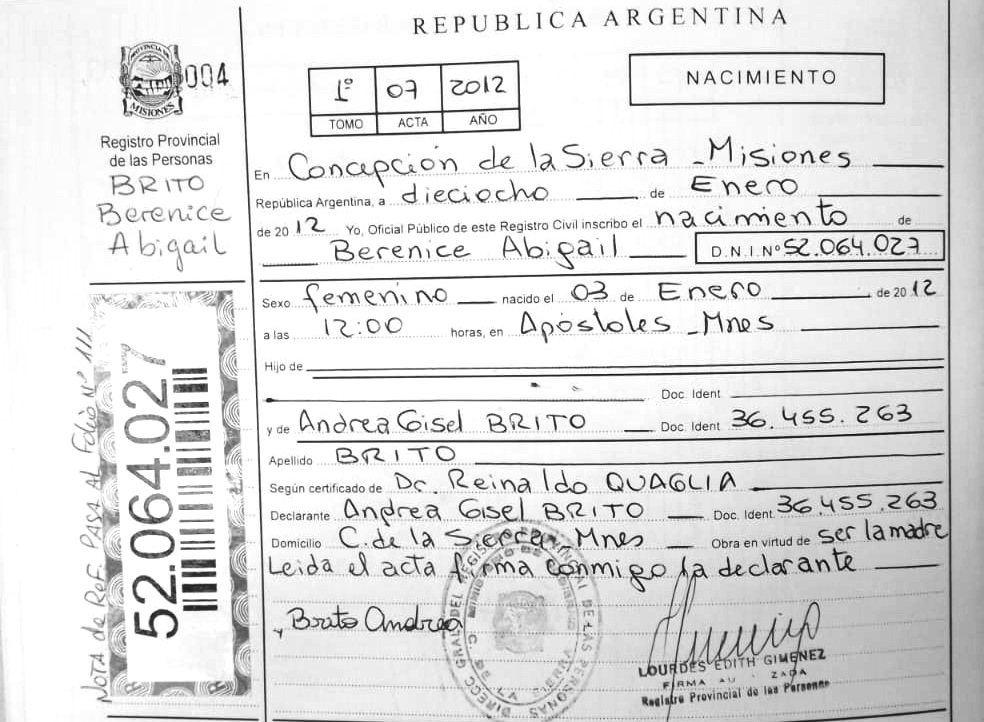 REPUBLICA ARGENTINA
PROVINCIA DE
MISIONES
004
Registro Provincial
de las Personas
BRITO
Berenice
Abigail
1º 07 2012
TOMO ACTA AÑO
NACIMIENTO
En Concepción de la Sierra - Misiones
República Argentina, a dieciocho de Enero
de 2012 Yo, Oficial Público de este Registro Civil inscribo el nacimiento de
Berenice Abigail D.N.I.Nº 52.064.027
Sexo femenino nacido el 03 de Enero de 2012
a las 12:00 horas, en Apóstoles - Mnes
Hijo de
Doc. Ident
y de Andrea Gisel BRITO Doc. Ident. 36.455.263
Apellido BRITO
Según certificado de Dr. Reinaldo QUAGLIA
Declarante Andrea Gisel BRITO Doc. Ident. 36.455.263
Domicilio C. de la Sierra Mnes Obra en virtud de ser la madre
Leida el acta firma conmigo la declarante
Brito Andrea
LOURDES EDITH GIMENEZ
FIRMA AU ZADA
Registro Provincial de las Personas
NOTA de Ref. PASA AL Folio Nº 111
52.064.027
DIRECC. GRAL. DEL REGISTRO DE LAS PERSONAS
C. DE LA SIERRA